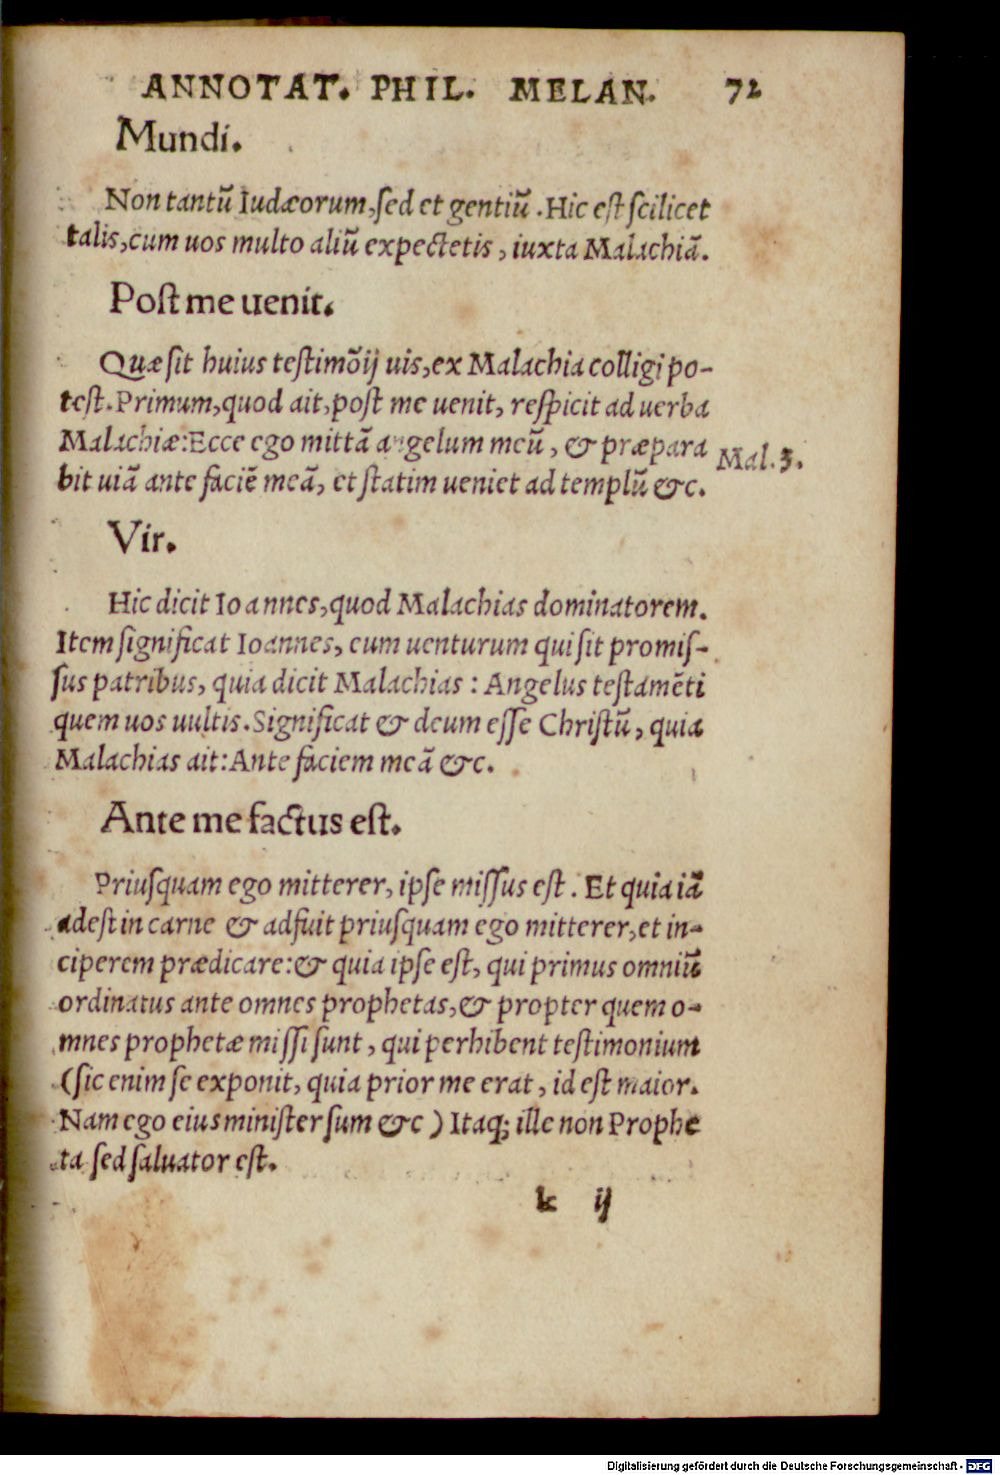 ANNOTAT. PHIL. MELAN. 72
Mundi.
Non tantũ Iudæorum, sed et gentiũ. Hic est scilicet
talis, cum uos multo aliũ expectetis, iuxta Malachiã.
Post me uenit.
Quæ sit huius testimõij uis, ex Malachia colligi po-
test. Primum, quod ait, post me uenit, respicit ad uerba
Malachiæ: Ecce ego mittã angelum meũ, & præpara
Mal. 3.
bit uiã ante faciẽ meã, et statim ueniet ad templũ &c.
Vir.
Hic dicit Ioannes, quod Malachias dominatorem.
Item significat Ioannes, eum uenturum qui sit promis-
sus patribus, quia dicit Malachias: Angelus testamẽti
quem uos uultis. Significat & deum esse Christũ, quia
Malachias ait: Ante faciem meã &c.
Ante me factus est.
Priusquam ego mitterer, ipse missus est. Et quia iã
adest in carne & adfuit priusquam ego mitterer, et in-
ciperem prædicare: & quia ipse est, qui primus omniũ
ordinatus ante omnes prophetas, & propter quem o-
mnes prophetæ missi sunt, qui perhibent testimonium
(sic enim se exponit, quia prior me erat, id est maior.
Nam ego eius minister sum &c) Itaq; ille non Prophe
ta sed saluator est.
k ij
Digitalisierung gefördert durch die Deutsche Forschungsgemeinschaft - DFG